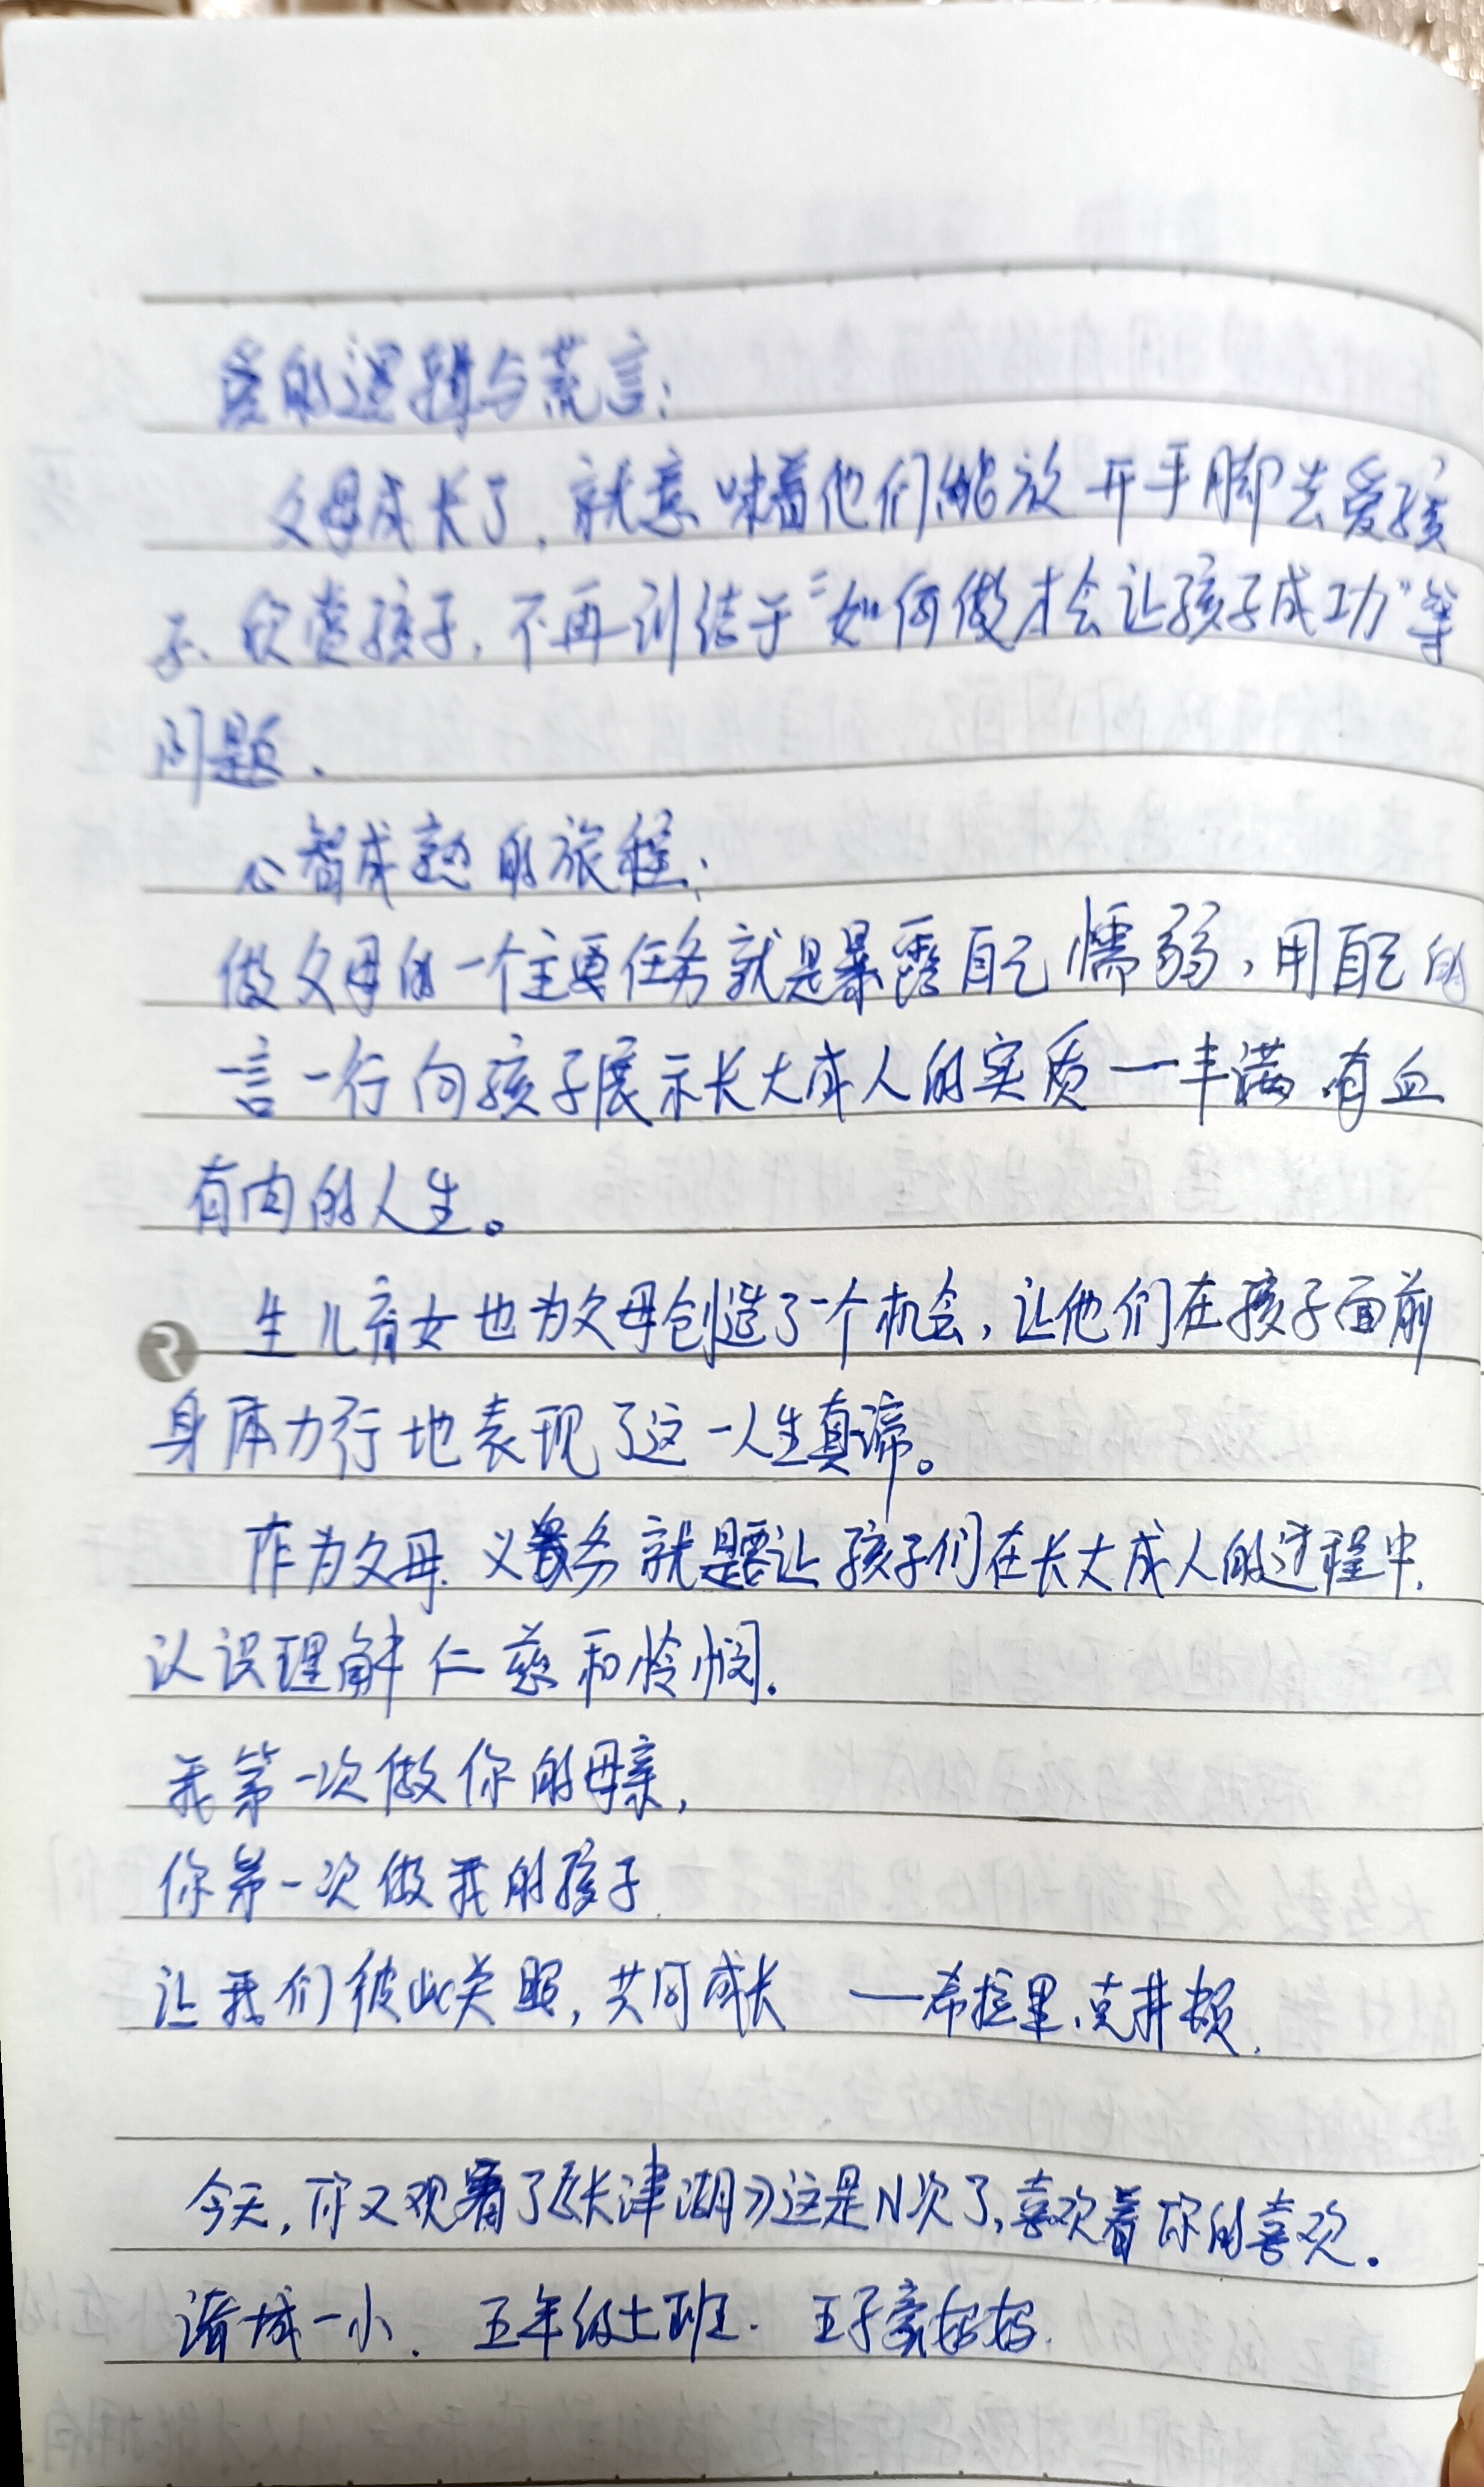 爱的逻辑与荒言：
父母成长了，就意味着他们能放开手脚去爱孩
子、欣赏孩子，不再纠结于“如何做才会让孩子成功”等
问题.
心智成熟的旅程：
做父母的一个主要任务就是暴露自己懦弱，用自己的
言一行向孩子展示长大成人的实质一丰满有血
有肉的人生。
生儿育女也为父母创造了一个机会，让他们在孩子面前
身体力行地表现了这一人生真谛。
作为父母.义务就是要让孩子们在长大成人的过程中.
认识理解仁慈和怜悯.
我第一次做你的母亲,
你第一次做我的孩子.
让我们彼此关照,共同成长 ——希拉里.克井顿.
今天,你又观看了《长津湖》这是N次了,喜欢着你的喜欢.
诸城一小. 五年级七班. 王子豪妈妈.